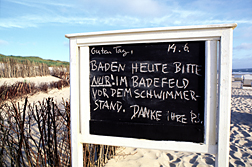 Guten Tag, 14.6.
BADEN HEUTE BITTE
NUR! IM BADEFELD
VOR DEM SCHWIMMER-
STAND. DANKE ihre